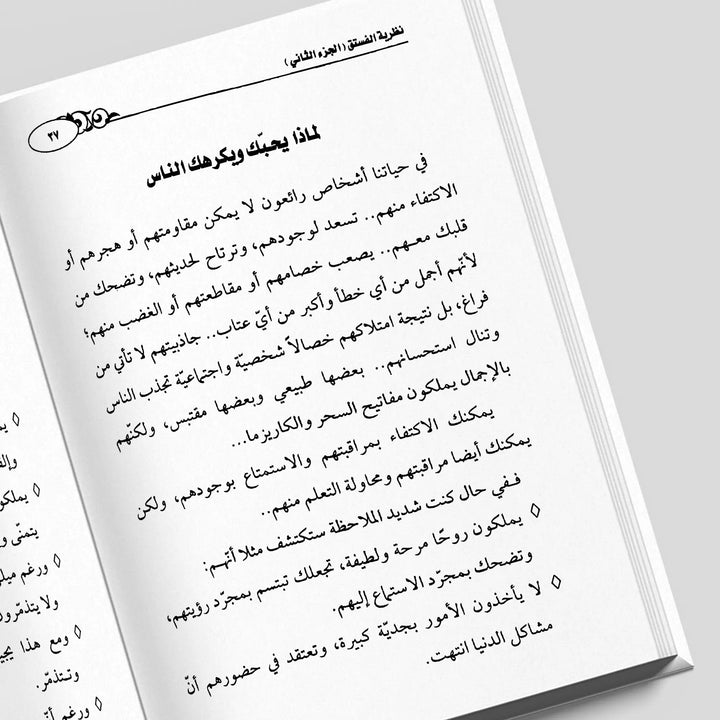 نظرية الفستق (الجزء الثاني)
٣٧
لماذا يحبّك ويكرهك الناس
في حياتنا أشخاص رائعون لا يمكن مقاومتهم أو هجرهم أو
الاكتفاء منهم.. تسعد لوجودهم، وترتاح لحديثهم، وتضحك من
قلبك معهم.. يصعب خصامهم أو مقاطعتهم أو الغضب منهم؛
لأنّهم أجمل من أي خطأ وأكبر من أيّ عتاب.. جاذبيتهم لا تأتي من
فراغ، بل نتيجة امتلاكهم خصالاً شخصيّة واجتماعيّة تجذب الناس
وتنال استحسانهم.. بعضها طبيعي وبعضها مقتبس، ولكنّهم
بالإجمال يملكون مفاتيح السحر والكاريزما...
يمكنك الاكتفاء بمراقبتهم والاستمتاع بوجودهم، ولكن
يمكنك أيضا مراقبتهم ومحاولة التعلم منهم..
ففي حال كنت شديد الملاحظة ستكتشف مثلا أنّهم:
◊ يملكون روحًا مرحة ولطيفة، تجعلك تبتسم بمجرّد رؤيتهم،
وتضحك بمجرّد الاستماع إليهم.
◊ لا يأخذون الأمور بجديّة كبيرة، وتعتقد في حضورهم أنّ
مشاكل الدنيا انتهت.
◊
◊ يملكو
يتمنّى و
◊ ورغم
ولا يتذمّرون
◊ ومع هذا
وتتذمّر.
◊ ورغم